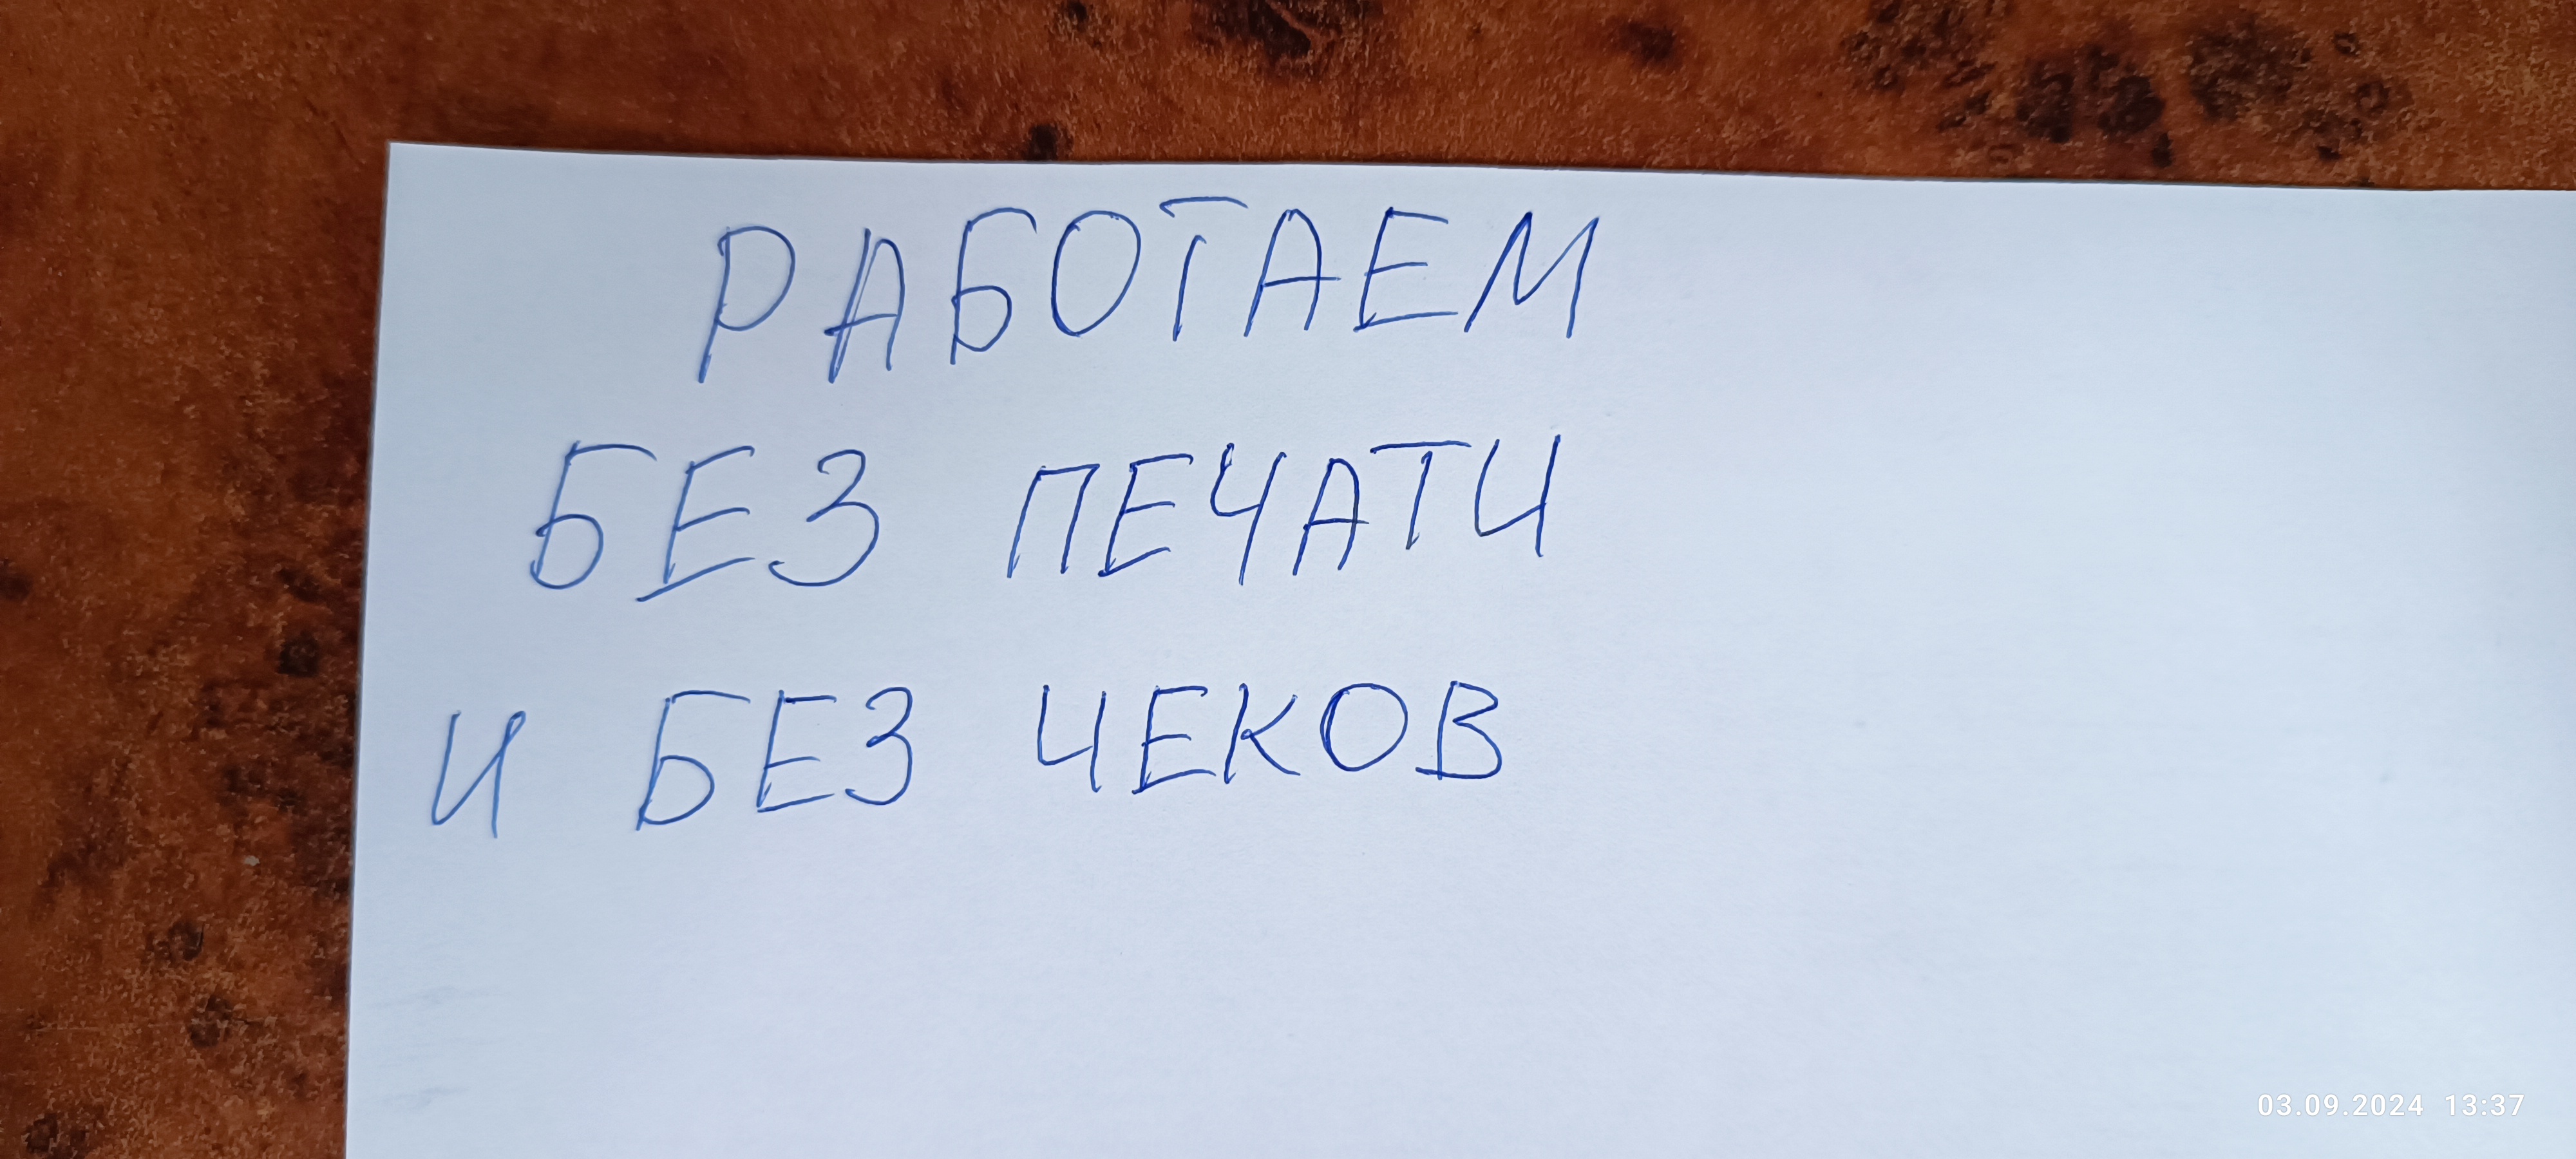 РАБОТАЕМ
БЕЗ ПЕЧАТИ
И БЕЗ ЧЕКОВ
03.09.2024 13:37